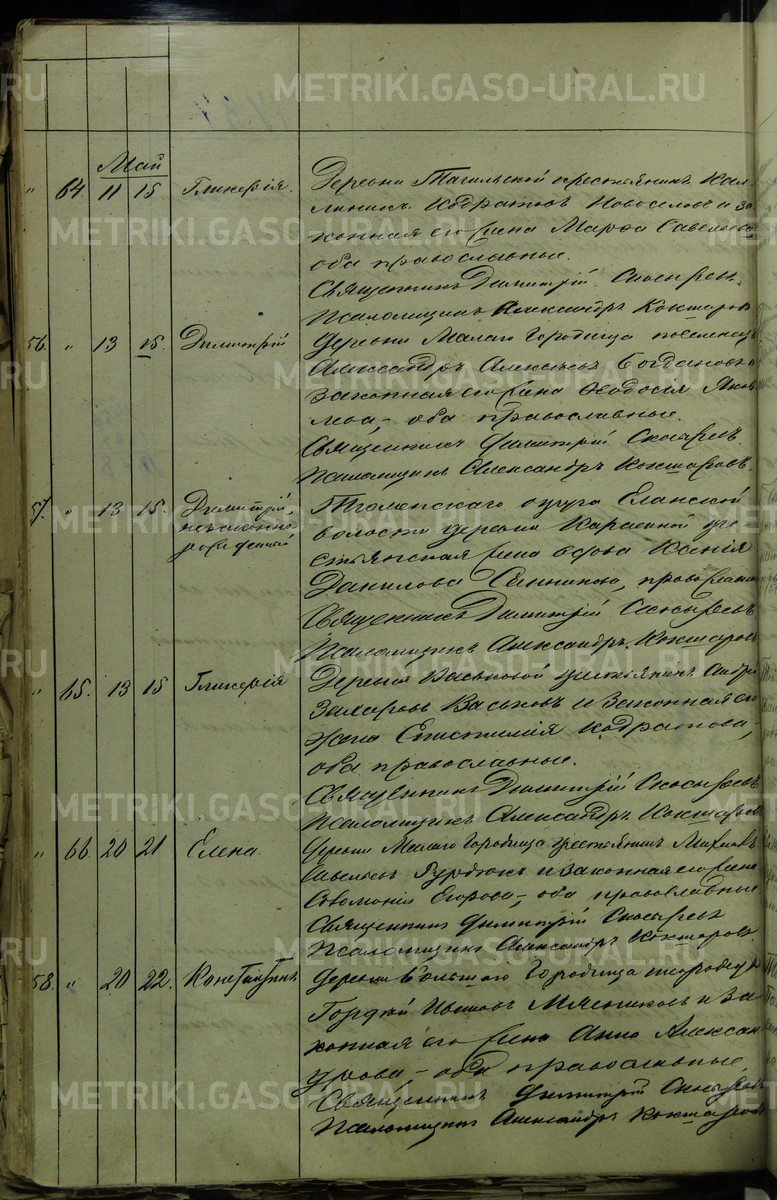 Май
" 64. 11 15 Гликерія. Деревни Тагильской крестьянинъ Кал-
линикъ Кодратовъ Новоселовъ и за-
конная его жена Марфа Савельева
оба православные.
Священникъ Димитрій Скосыревъ.
Псаломщикъ Александръ Кокшаровъ
56. " 13 15. Димитрій деревни Малаго Городища поселенецъ
Александръ Алексѣевъ Богдановъ и
законная его жена Ѳеодосія Яков-
лева, оба православные.
Священникъ Димитрій Скосыревъ.
Псаломщикъ Александръ Кокшаровъ.
57. " 13 15. Димитрій, Тюменскаго округа Еланской
незаконно волости деревни кре-
рожденный стьянская жена вдова Ксенія
Данилова православная
Священникъ Димитрій Скосыревъ
Псаломщикъ Александръ Кокшаровъ
" 65. 13 15 Гликерія Деревни Васьковой крестьянинъ Андрей
Захаровъ Васьковъ и законная его
жена Епистимія Кодратова,
оба православные.
Священникъ Димитрій Скосыревъ
Псаломщикъ Александръ Кокшаровъ
" 66. 20 21 Елена. деревни Малаго Городища крестьянинъ
Савельевъ и законная его жена
Соломонія Егорова, оба православные
Священникъ Димитрій Скосыревъ
Псаломщикъ Александръ Кокшаровъ.
58. " 20 22. Константинъ деревни Большаго Городища
Гордѣй Ивановъ Мясниковъ и за-
конная его жена Анна Алексан-
дрова, оба православные,
Священникъ Димитрій Скосыревъ
Псаломщикъ Александръ Кокшаровъ
METRIKI.GASO-URAL.RU